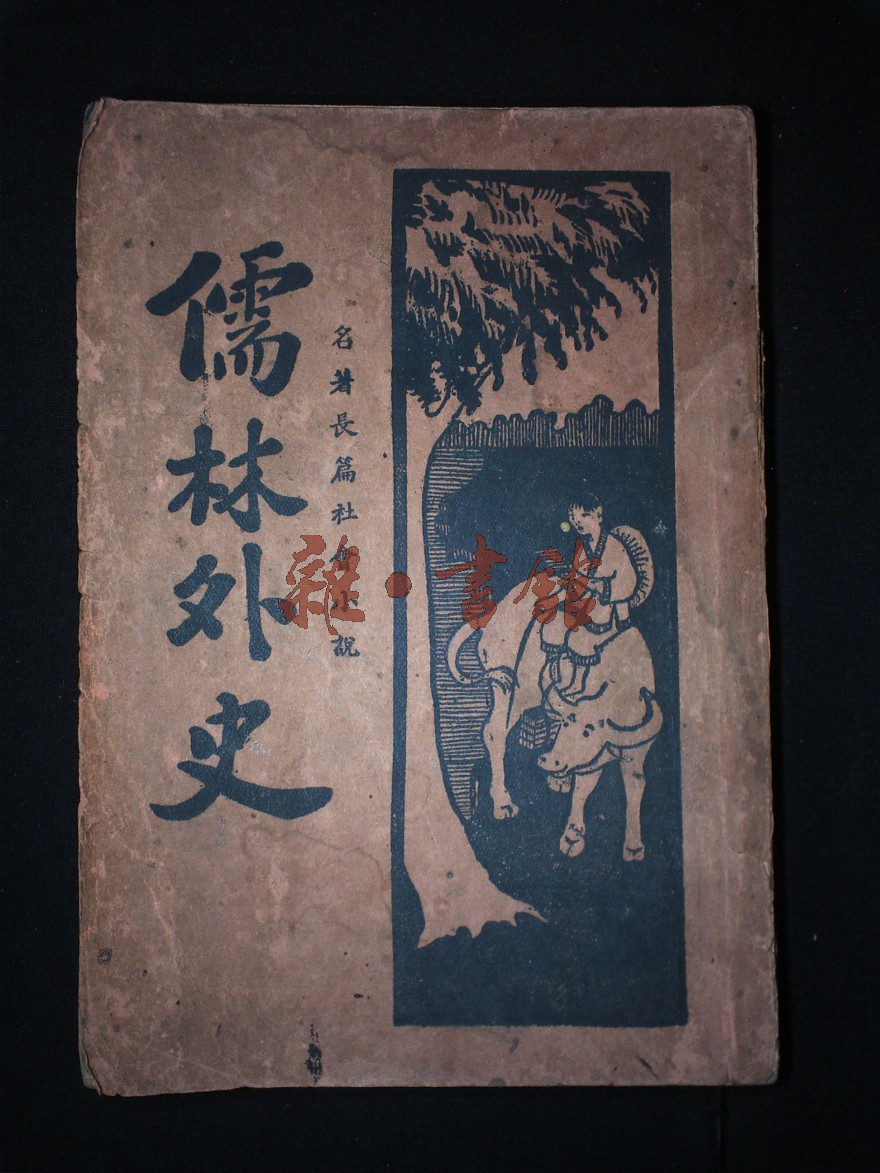 儒林外史
名著長篇社會小說
雜·書館